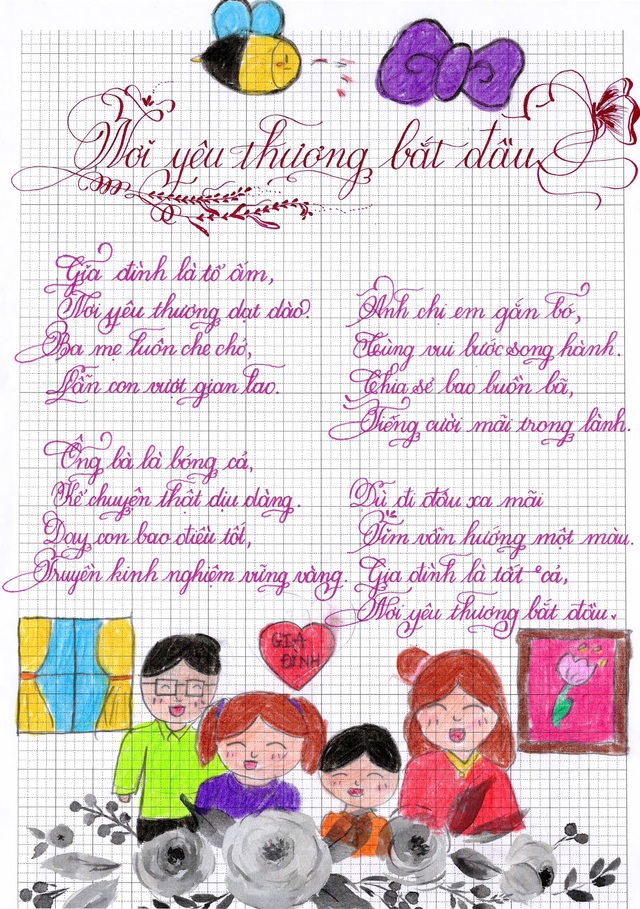 Nơi yêu thương bắt đầu
Gia đình là tổ ấm,
Nơi yêu thương dạt dào.
Ba mẹ luôn che chở,
Dẫn con vượt gian lao.
Ông bà là bóng cả,
Kể chuyện thật dịu dàng.
Dạy con bao điều tốt,
Truyền kinh nghiệm vững vàng.
Anh chị em gắn bó,
Cùng vui bước song hành.
Chia sẻ bao buồn bã,
Tiếng cười mãi trong lành.
Dù đi đâu xa mãi
Tim vẫn hướng một màu.
Gia đình là tất cả,
Nơi yêu thương bắt đầu.
GIA
ĐÌNH